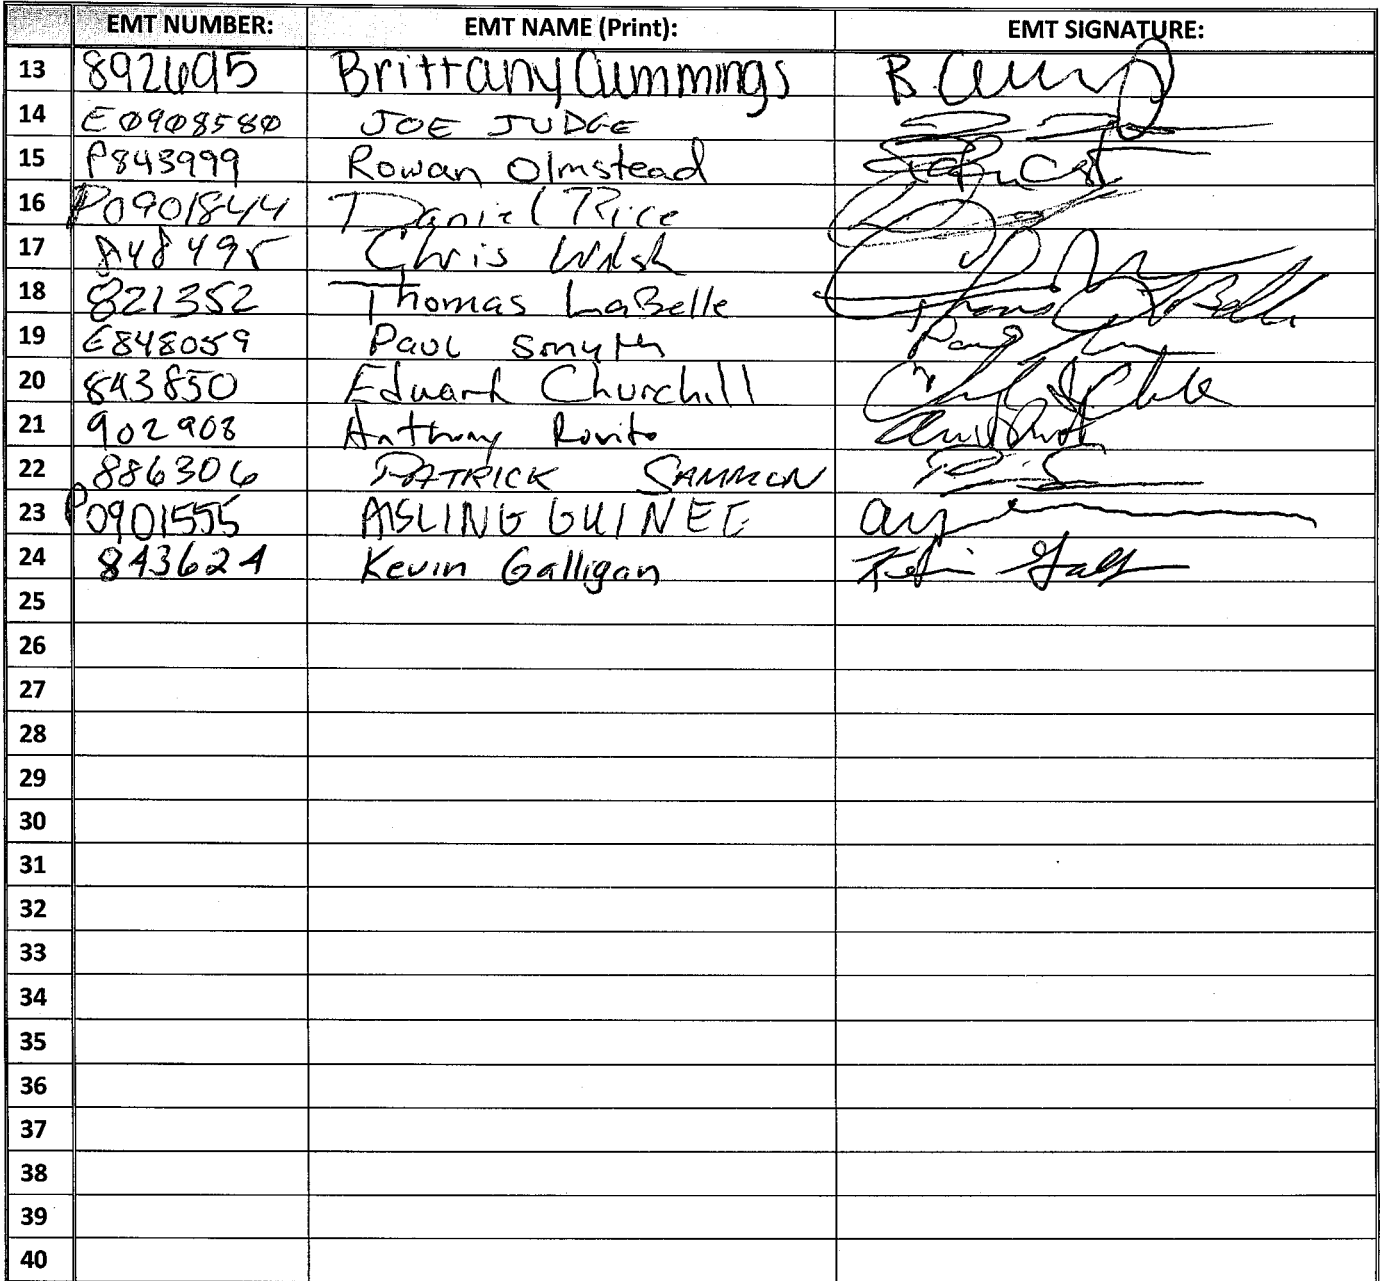 EMT NUMBER: EMT NAME (Print): EMT SIGNATURE:
13 892695 Brittany Cummings B. Cum
14 E0908580 JOE JUDGE
15 P843999 Rowan Olmstead
16 P0901844 Daniel Rice
17 A48495 Chris Walsh
18 821352 Thomas LaBelle Thomas LaBelle
19 E848059 Paul Smyth Paul
20 843850 Edward Churchill
21 902908 Anthony Rovito
22 886306 PATRICK SAMMON
23 P0901555 AISLING GUINEE
24 843624 Kevin Galligan Kevin Gall
25
26
27
28
29
30
31
32
33
34
35
36
37
38
39
40